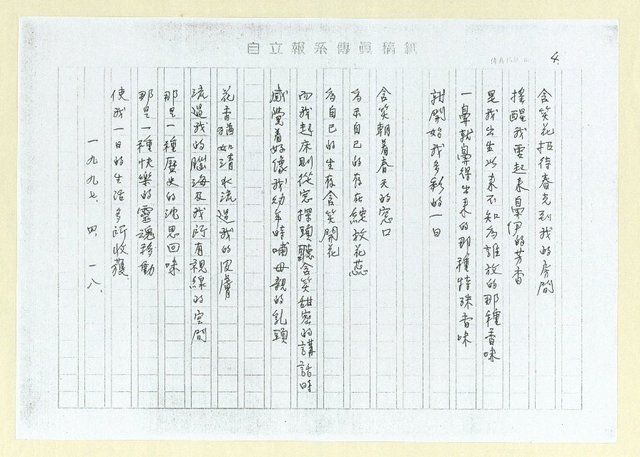 自立報系傳真稿紙
4.
含笑花招待春光到我的房間
搖醒我要起來鼻伊的芳香
是我出生以來不知為誰放的那種香味
一鼻就鼻得出來的那種特殊香味
就開始我多彩的一日
含笑朝着春天的窓口
為示自己的存在綻放花蕊
為自己的生存含笑開花
而我起床則從窓探頭聽含笑甜密的講話時
感覺着好像我幼年時哺母親的乳頭
花香猶如清水流過我的皮膚
流過我的腦海及我所有視線的空間
那是一種歷史的沈思回味
那是一種快樂的靈魂移動
使我一日的生活多所收獲
一九九七、四、一八、